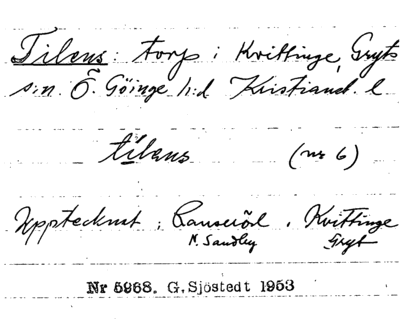 Tilens: torp i Kvittinge, Gryts
s:n. Ö. Göinge h:d Kristianst. l
tilens (nr 6)
Upptecknat i Kvittinge
N. Sandby Gryt
Nr 5968. G. Sjöstedt 1953